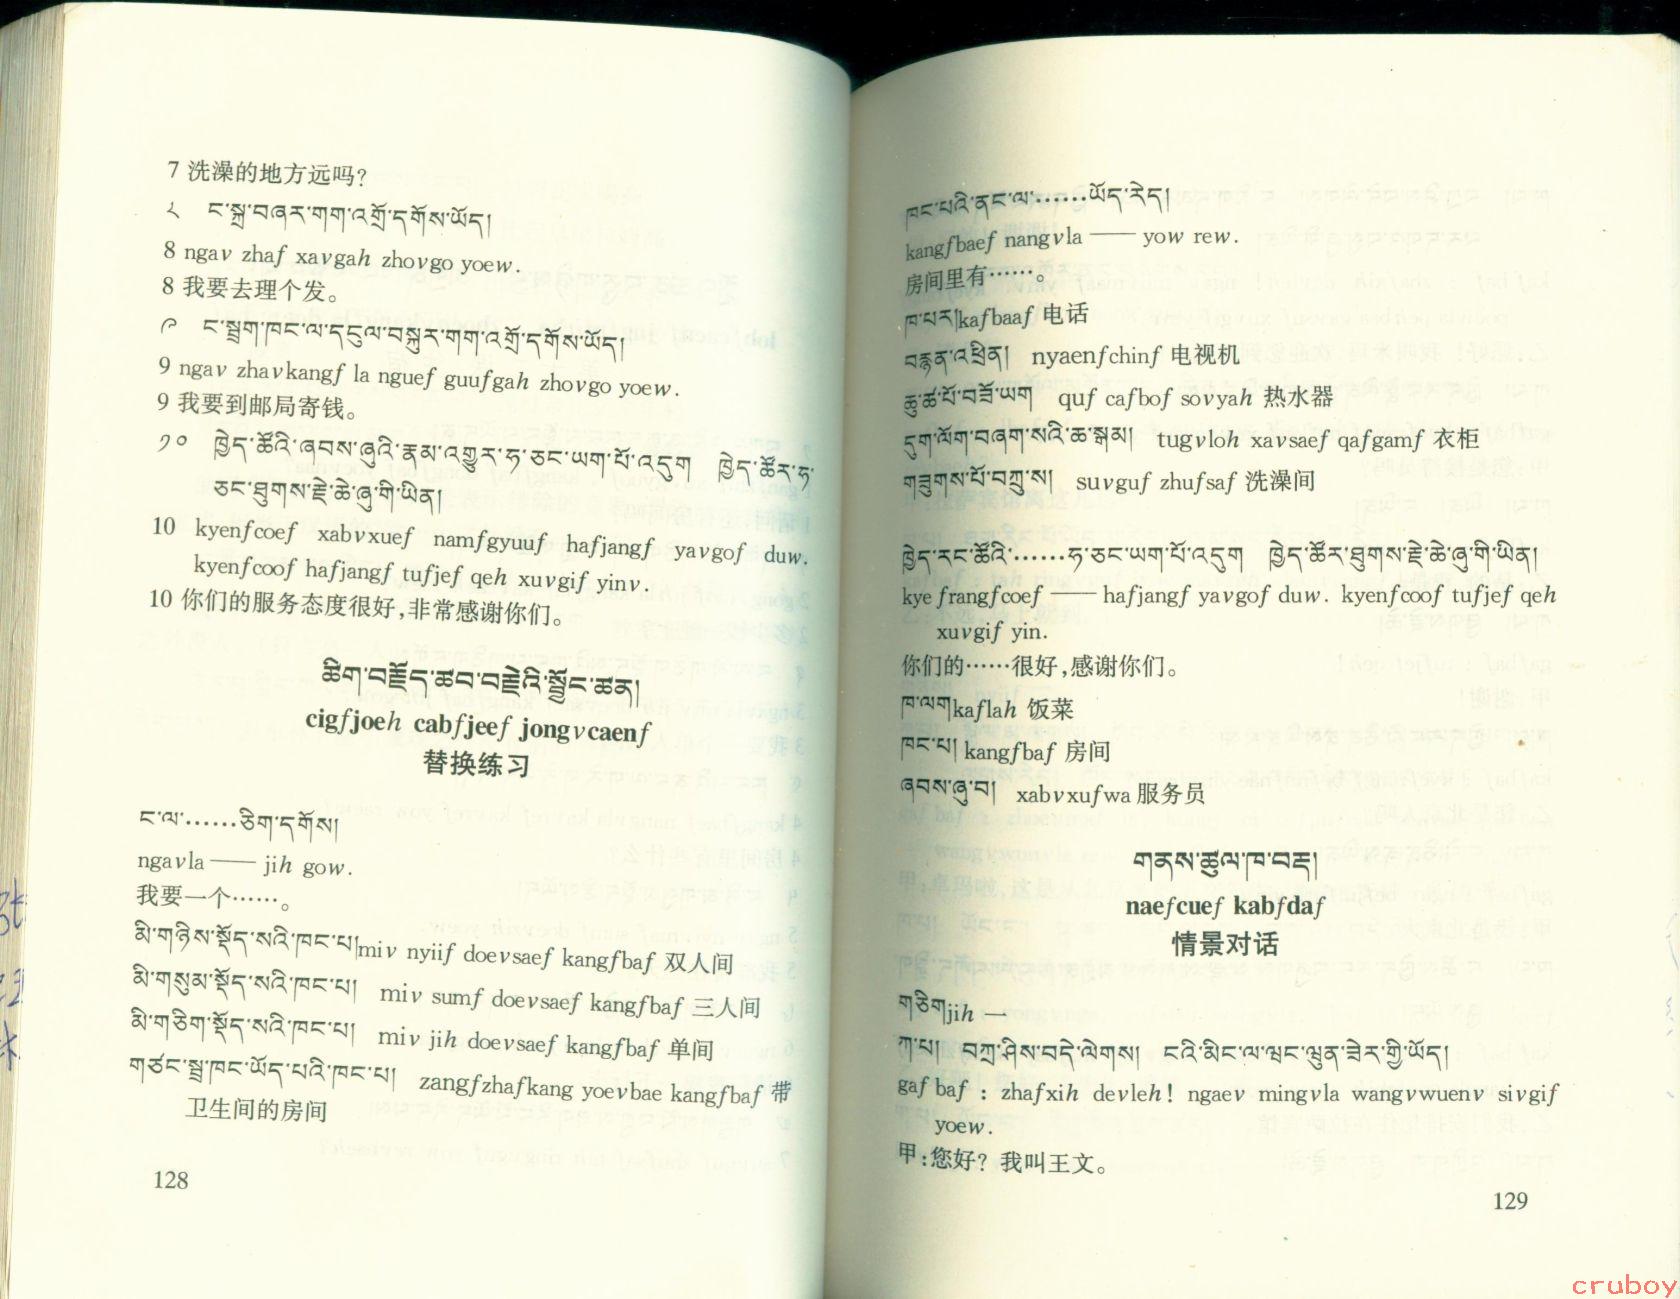 7 洗澡的地方远吗?
༨ ང་སྐྲ་བཞར་གག་འགྲོ་དགོས་ཡོད།
8 ngav zhaf xavgah zhovgo yoew.
8 我要去理个发。
༩ ང་སྦྲག་ཁང་ལ་དངུལ་བསྐུར་གག་འགྲོ་དགོས་ཡོད།
9 ngav zhavkangf la nguef guufgah zhovgo yoew.
9 我要到邮局寄钱。
༡༠ ཁྱེད་ཚོའི་ཞབས་ཞུའི་རྣམ་འགྱུར་ཧ་ཅང་ཡག་པོ་འདུག ཁྱེད་ཚོར་ཧ་
ཅང་ཐུགས་རྗེ་ཆེ་ཞུ་གི་ཡིན།
10 kyenfcoef xabvxuef namfgyuuf hafjangf yavgof duw.
kyenfcoof hafjangf tufjef qeh xuvgif yinv.
10 你们的服务态度很好,非常感谢你们。
ཚིག་བརྗོད་ཚབ་བརྗེའི་སྦྱོང་ཚན།
cigfjoeh cabfjeef jongvcaenf
替换练习
ང་ལ་……ཅིག་དགོས།
ngavla —— jih gow.
我要一个……。
མི་གཉིས་སྡོད་སའི་ཁང་པ།miv nyiif doevsaef kangfbaf 双人间
མི་གསུམ་སྡོད་སའི་ཁང་པ། miv sumf doevsaef kangfbaf 三人间
མི་གཅིག་སྡོད་སའི་ཁང་པ། miv jih doevsaef kangfbaf 单间
གཙང་སྦྲ་ཁང་ཡོད་པའི་ཁང་པ། zangfzhafkang yoevbae kangfbaf 带
卫生间的房间
128
ཁང་པའི་ནང་ལ་……ཡོད་རེད།
kangfbaef nangvla —— yow rew.
房间里有……。
ཁ་པར།kafbaaf 电话
བརྙན་འཕྲིན། nyaenfchinf 电视机
ཆུ་ཚ་པོ་བཟོ་ཡག quf cafbof sovyah 热水器
དུག་ལོག་བཞག་སའི་ཆ་སྒམ། tugvloh xavsaef qafgamf 衣柜
གཟུགས་པོ་བཀྲུ་ས། suvguf zhufsaf 洗澡间
ཁྱེད་རང་ཚོའི་……ཧ་ཅང་ཡག་པོ་འདུག ཁྱེད་ཚོར་ཐུགས་རྗེ་ཆེ་ཞུ་གི་ཡིན།
kyefrangfcoef —— hafjangf yavgof duw. kyenfcoof tufjef qeh
xuvgif yin.
你们的……很好,感谢你们。
ཁ་ལག།kaflah 饭菜
ཁང་པ། kangfbaf 房间
ཞབས་ཞུ་བ། xabvxufwa 服务员
གནས་ཚུལ་ཁ་བརྡ།
naefcuef kabfdaf
情景对话
གཅིག།jih 一
ཀ་པ། བཀྲ་ཤིས་བདེ་ལེགས། ངའི་མིང་ལ་ཝང་ཝུན་ཟེར་གྱི་ཡོད།
gafbaf : zhafxih devleh! ngaev mingvla wangvwuenv sivgif
yoew.
甲:您好? 我叫王文。
129
cruboy